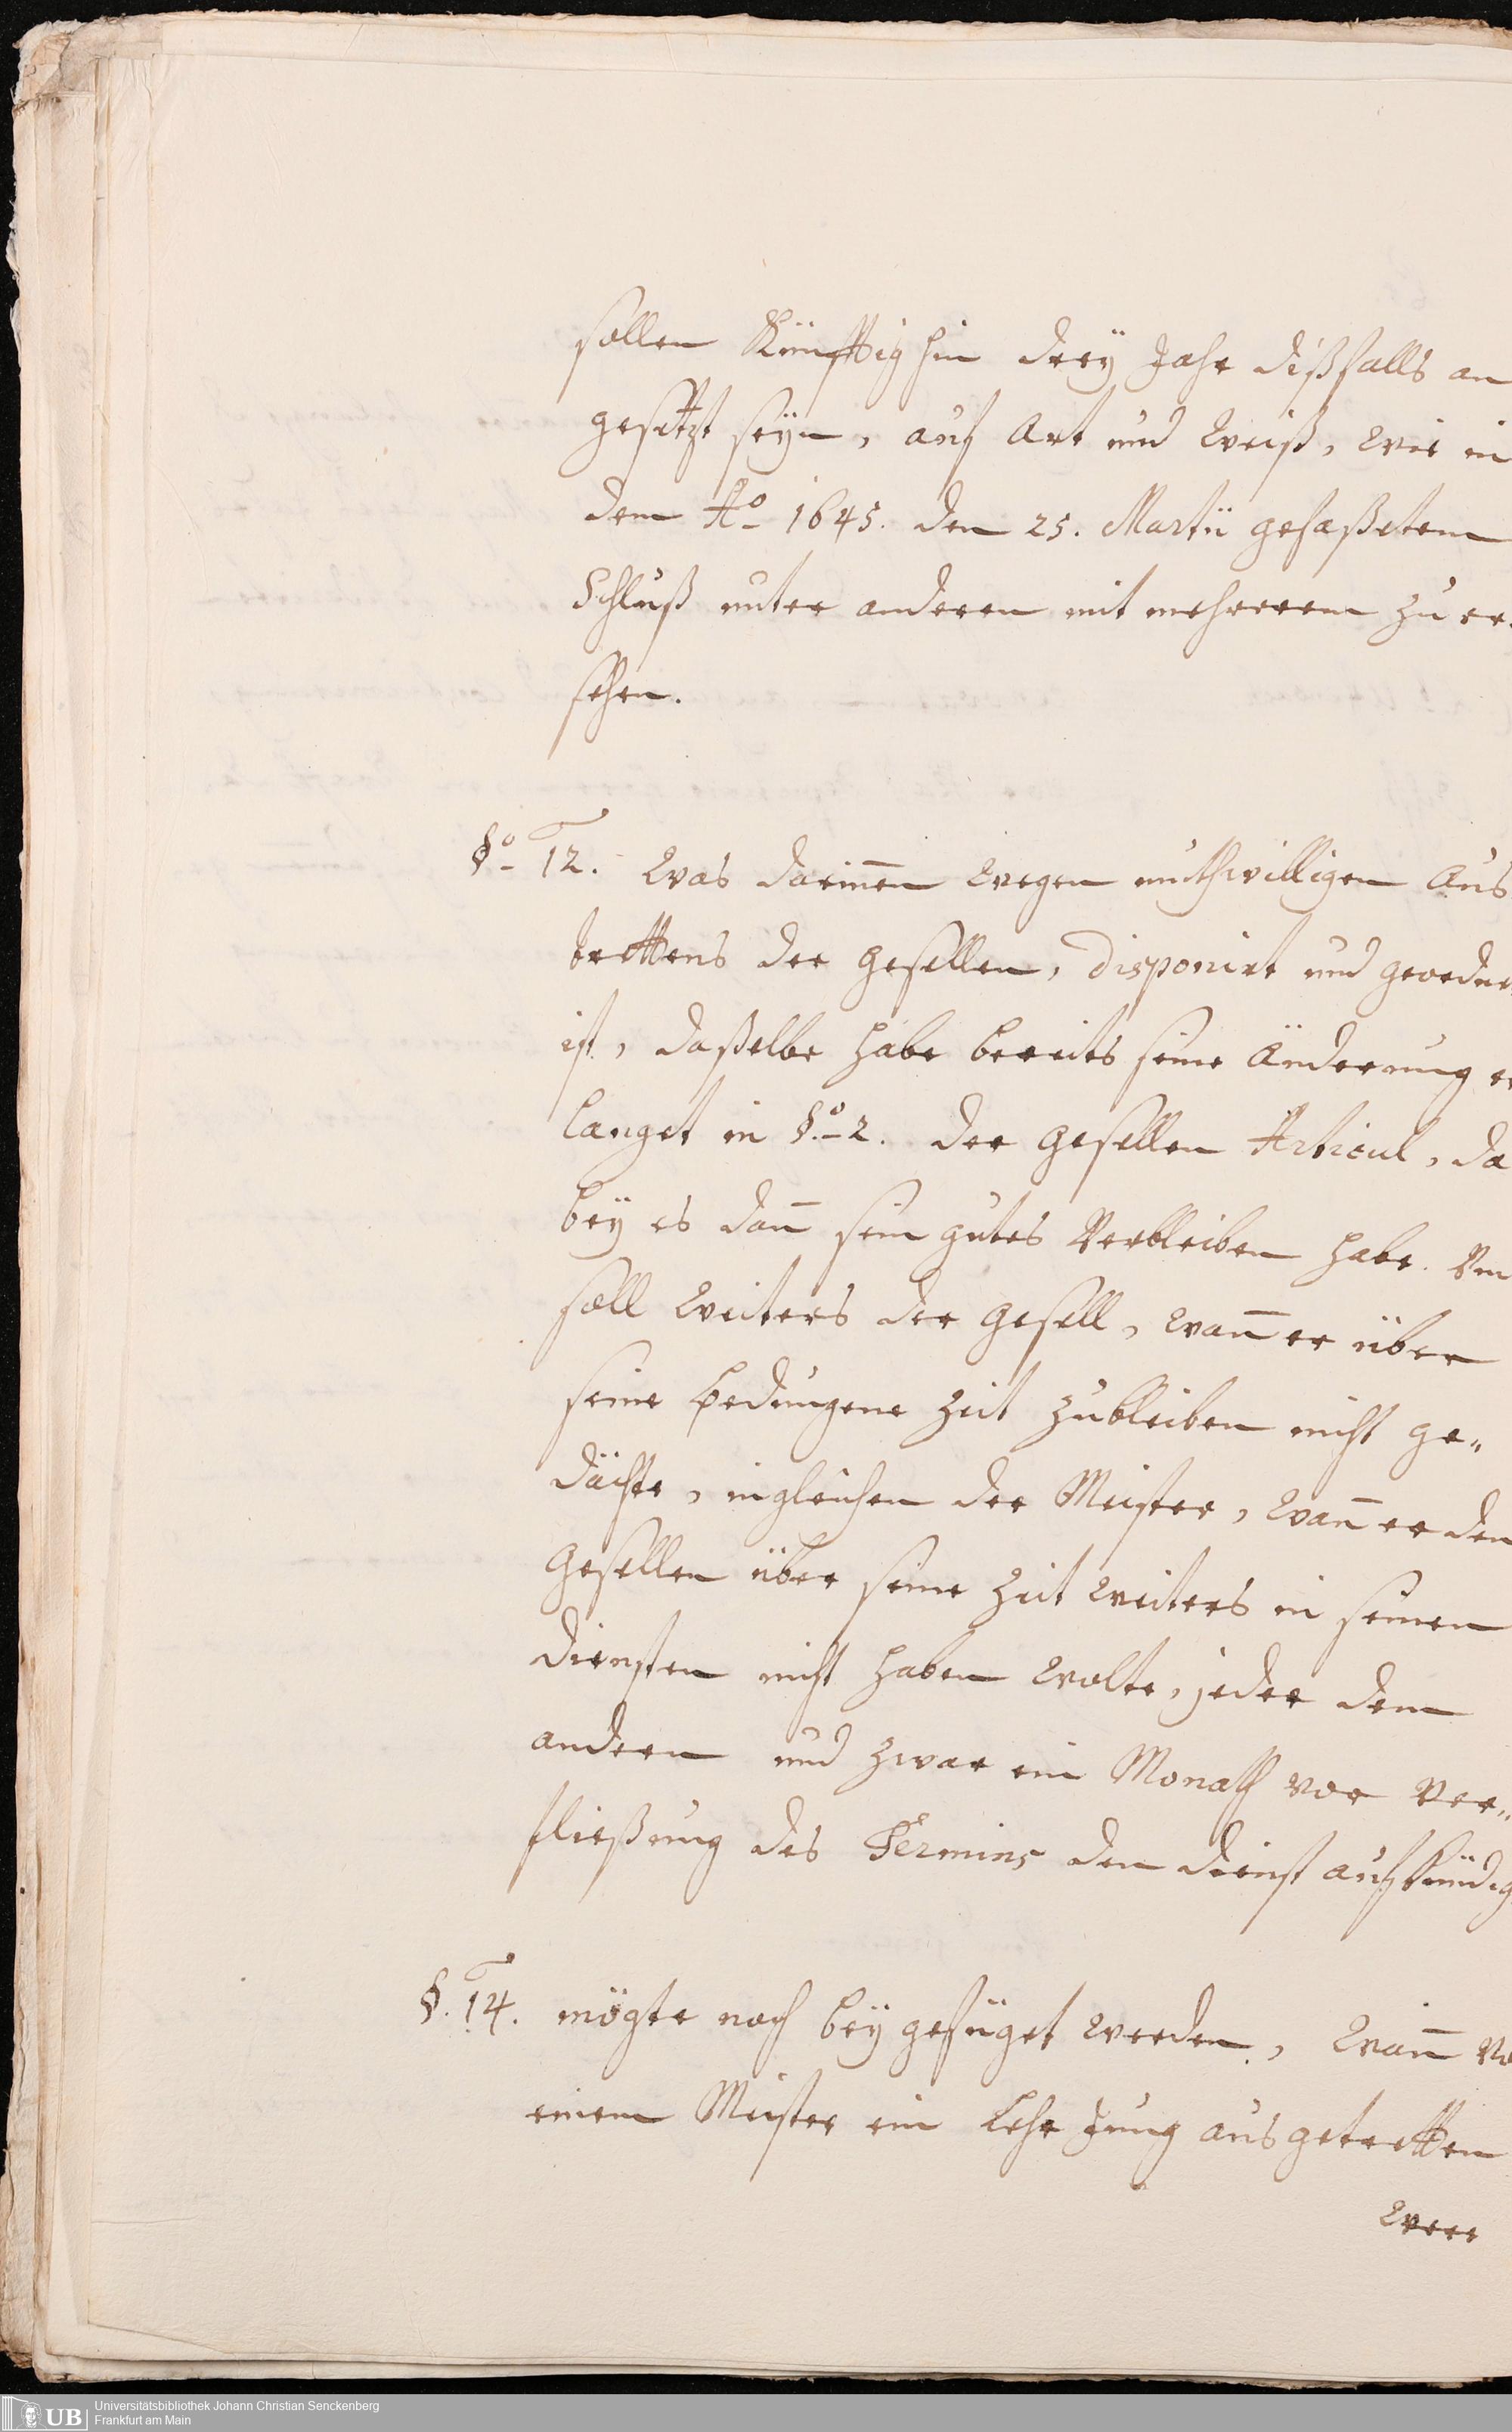 sollen Künfftig hin dreÿ Jahr dißfalls an
gesetzt seÿn, auf Art und Weiß, wie in
dem Aº 1645. den 25. Martii gefaßetem
Schluß unter anderen mit mehrerem zu er-
sehen.
§º 12. Was darin̄en wegen muthwilligen Aus
trettens der Gesellen, disponirt und geordne
ist, daßelbe habe bereits seine Änderung er
langet in §º 2. der Gesellen Articul, da
beÿ es dan̄ sein gutes Verbleiben habe. Un
soll weiters der Gesell, wan̄ er über
seine bedungene Zeit zubleiben nicht ge„
dächte, ingleichen der Meister, wan̄ er den
Gesellen über seine Zeit weiters in seinen
Diensten nicht haben wolte, jeder dem
andern und zwar ein Monath vor Ver„
fließung des Termins den Dienst aufkündig
§. 14. mögte noch beÿ gefüget werden, Wan̄ vo
einem Meister ein Lehr Jung ausgetretten
were
UB Universitätsbibliothek Johann Christian Senckenberg
Frankfurt am Main